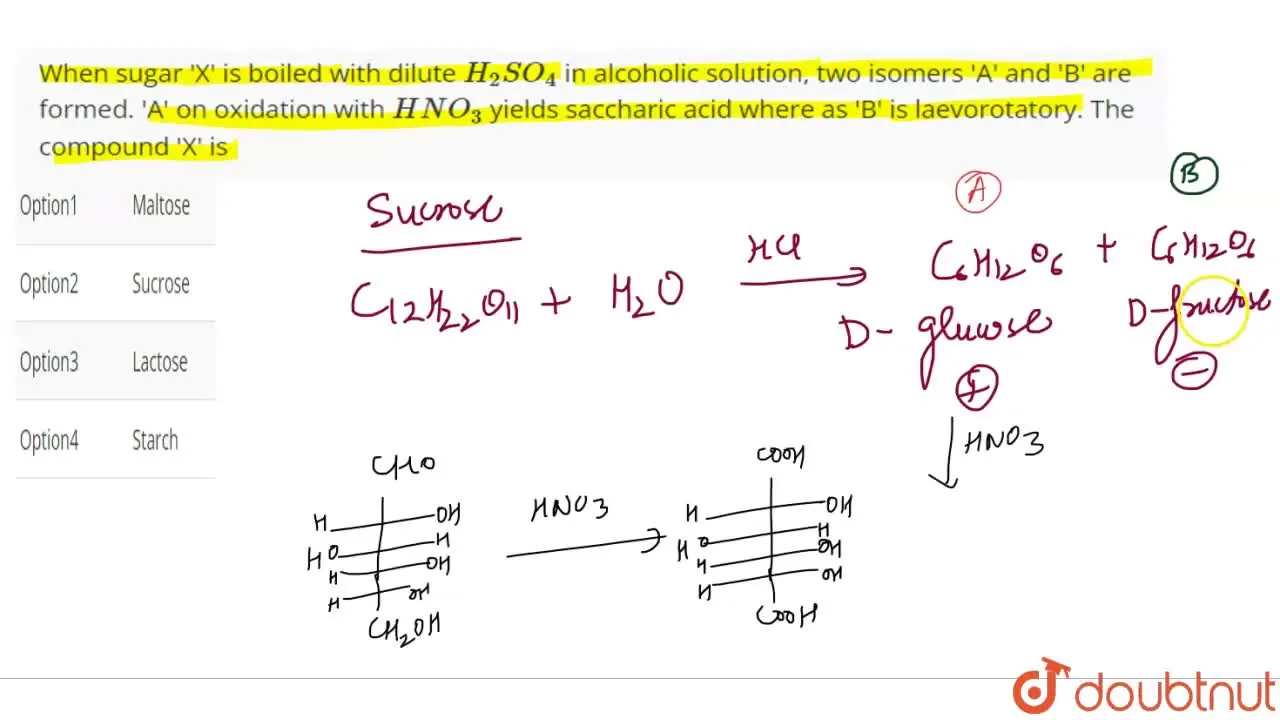 When sugar 'X' is boiled with dilute H₂SO₄ in alcoholic solution, two isomers 'A' and 'B' are
formed. 'A' on oxidation with HNO₃ yields saccharic acid where as 'B' is laevorotatory. The
compound 'X' is
Option1 Maltose
Option2 Sucrose
Option3 Lactose
Option4 Starch
Sucrose
A
B
C₁₂H₂₂O₁₁ + H₂O
HCl
C₆H₁₂O₆ + C₆H₁₂O₆
D- glucose
D-fructose
+
−
HNO₃
CHO
H OH
HO H
H OH
H OH
CH₂OH
HNO₃
COOH
H OH
HO H
H OH
H OH
COOH
doubtnut